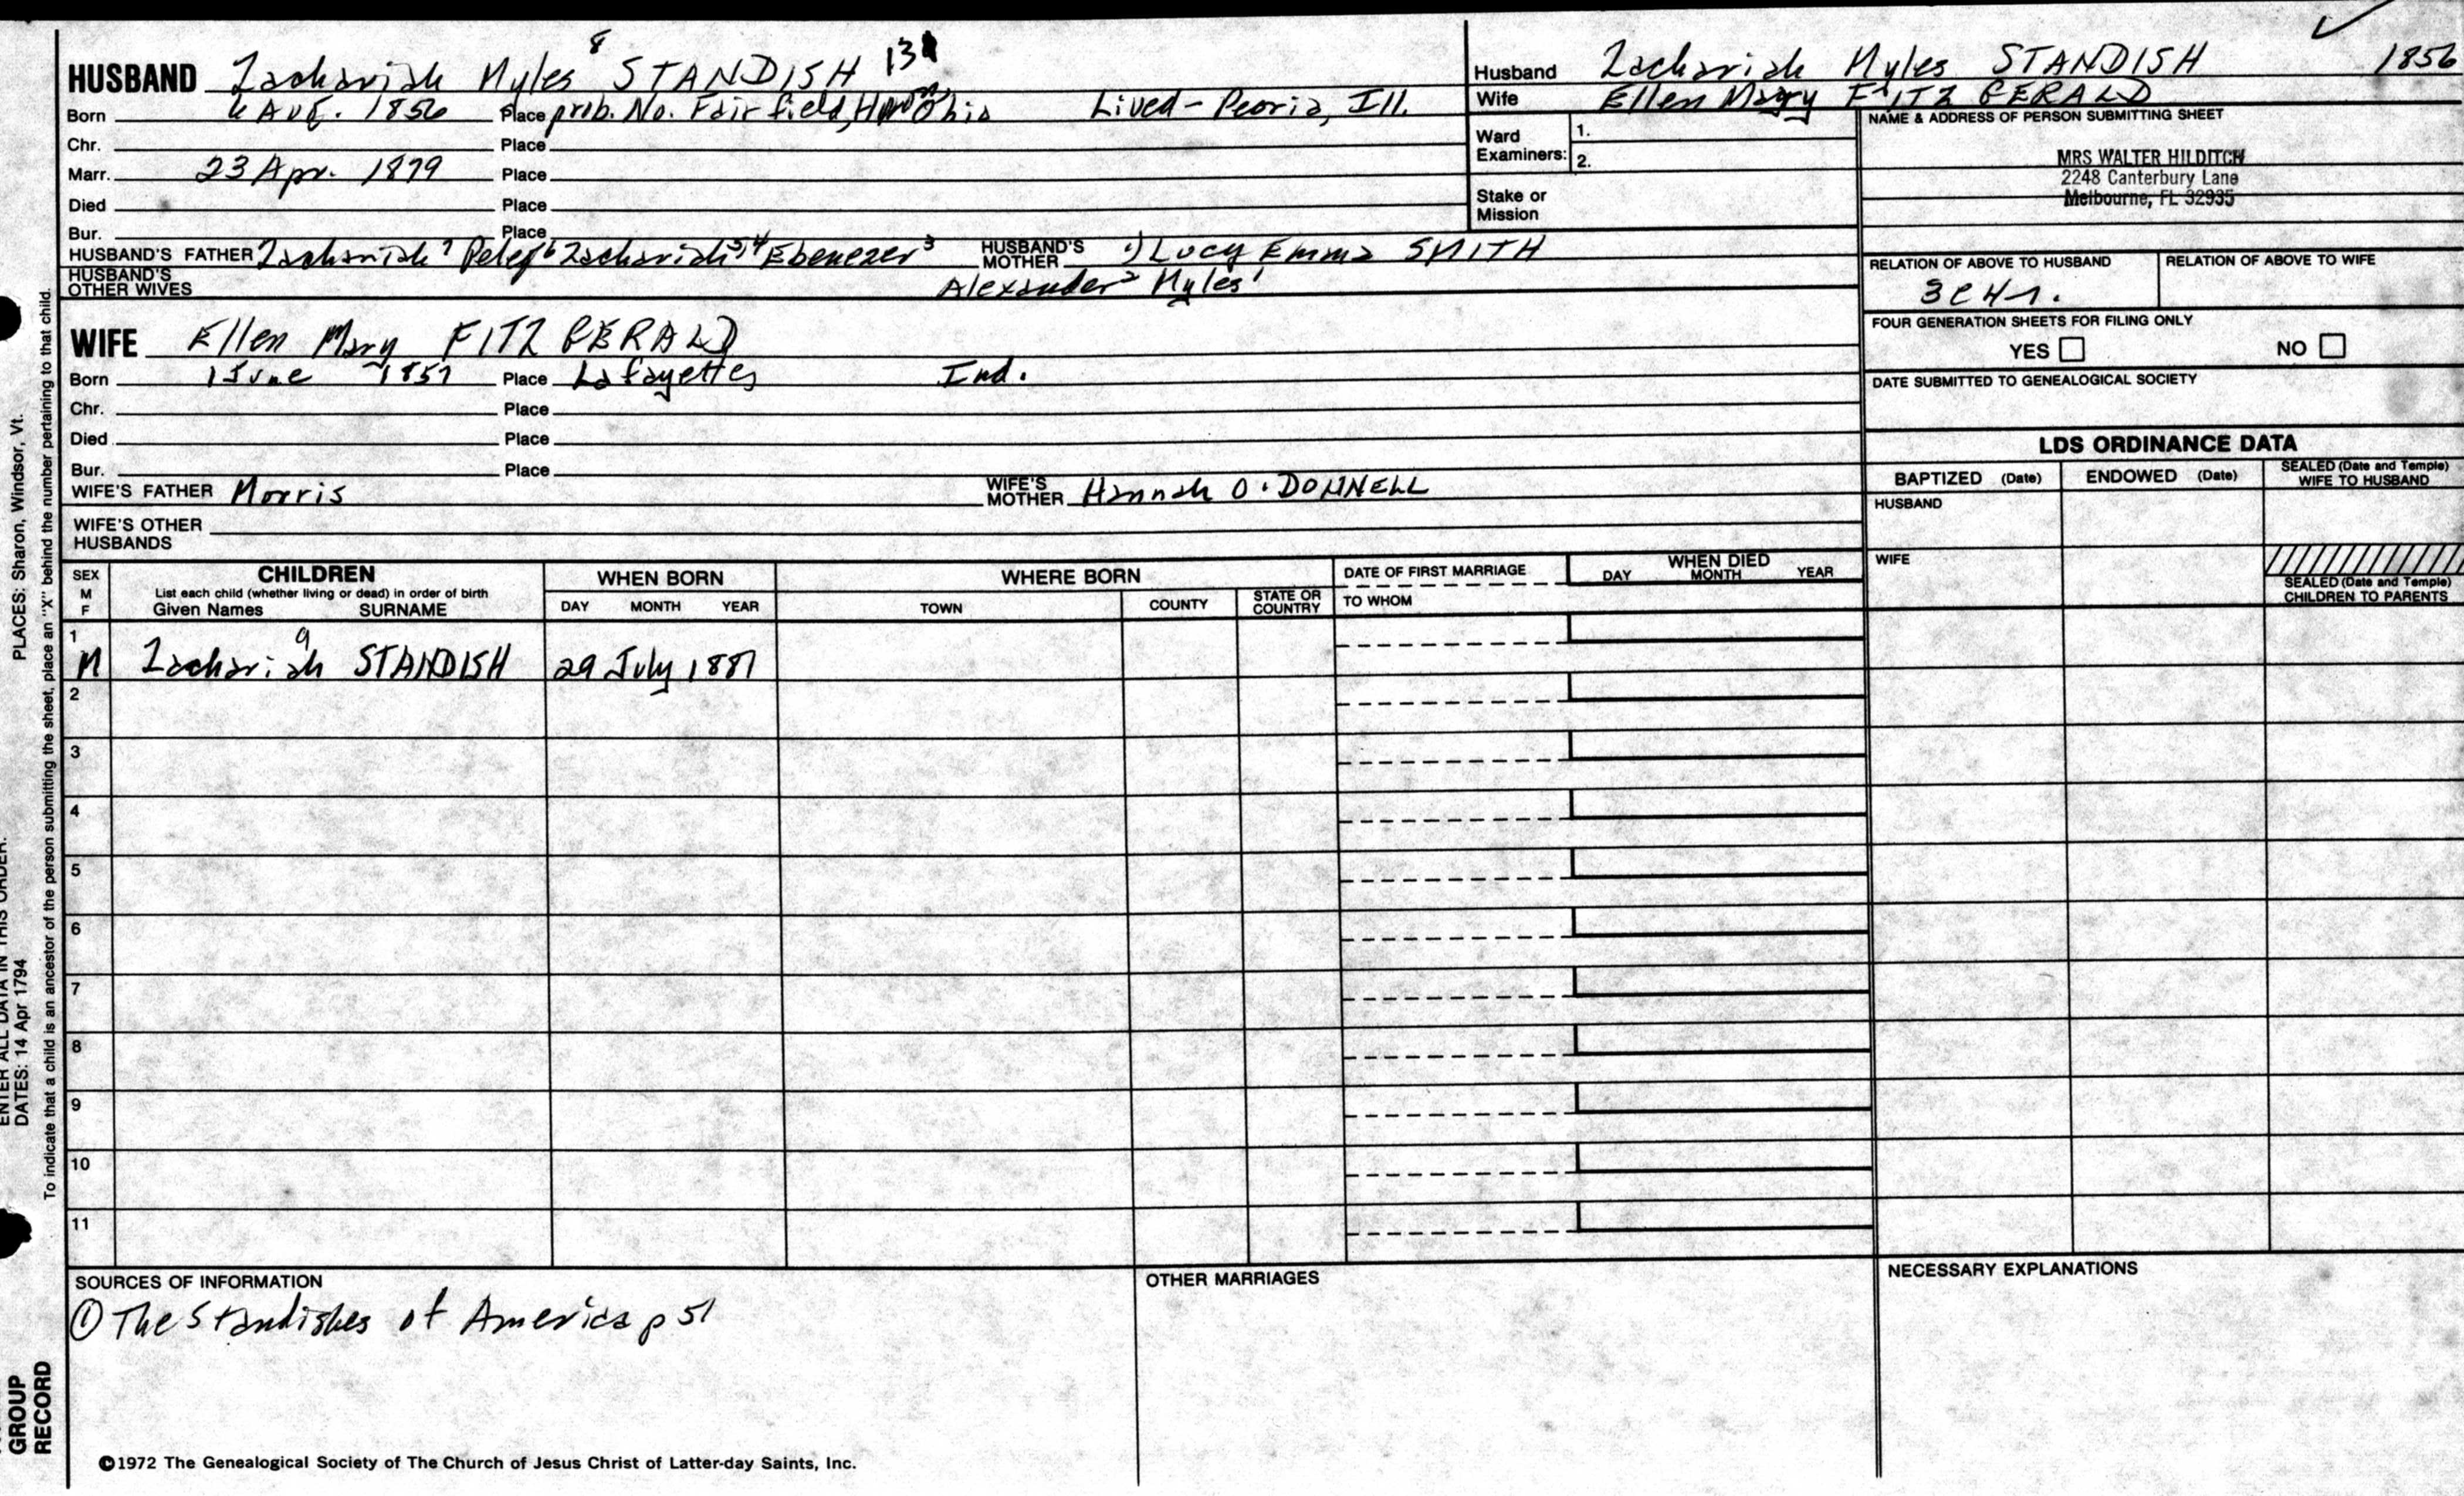 HUSBAND Zachariah Myles 8 STANDISH
Born 6 AUG. 1856 Place prob. No. Fairfield, Ohio Lived - Peoria, Ill.
Chr. Place
Marr. 23 Apr. 1879 Place
Died Place
Bur. Place
HUSBAND'S FATHER Zachariah 7 Peleg 6 Zachariah 5,4 Ebenezer 3 HUSBAND'S MOTHER 1) Lucy Emma SMITH
HUSBAND'S OTHER WIVES Alexander 2 Myles 1
Husband Zachariah Myles STANDISH 1856
Wife Ellen Mary FITZ GERALD
Ward Examiners: 1.
2.
Stake or Mission
NAME & ADDRESS OF PERSON SUBMITTING SHEET
MRS WALTER HILDITCH
2248 Canterbury Lane
Melbourne, FL 32935
RELATION OF ABOVE TO HUSBAND RELATION OF ABOVE TO WIFE
FOUR GENERATION SHEETS FOR FILING ONLY
YES NO
DATE SUBMITTED TO GENEALOGICAL SOCIETY
WIFE Ellen Mary FITZ GERALD
Born 1 June 1857 Place Lafayette Ind.
Chr. Place
Died Place
Bur. Place
WIFE'S FATHER Morris WIFE'S MOTHER Hannah O'DONNELL
WIFE'S OTHER HUSBANDS
LDS ORDINANCE DATA
BAPTIZED (Date) ENDOWED (Date) SEALED (Date and Temple) WIFE TO HUSBAND
HUSBAND
WIFE
SEALED (Date and Temple) CHILDREN TO PARENTS
SEX M F
CHILDREN
List each child (whether living or dead) in order of birth
Given Names SURNAME
WHEN BORN
DAY MONTH YEAR
WHERE BORN
TOWN COUNTY STATE OR COUNTRY
DATE OF FIRST MARRIAGE
TO WHOM
WHEN DIED
DAY MONTH YEAR
1
M Zachariah 9 STANDISH 29 July 1881
2
3
4
5
6
7
8
9
10
11
SOURCES OF INFORMATION
① The Standishes of America p 51
OTHER MARRIAGES
NECESSARY EXPLANATIONS
©1972 The Genealogical Society of The Church of Jesus Christ of Latter-day Saints, Inc.
ENTER ALL DATA IN THIS ORDER:
DATES: 14 Apr 1794 PLACES: Sharon, Windsor, Vt.
To indicate that a child is an ancestor of the person submitting the sheet, place an "X" behind the number pertaining to that child.
GROUP
RECORD